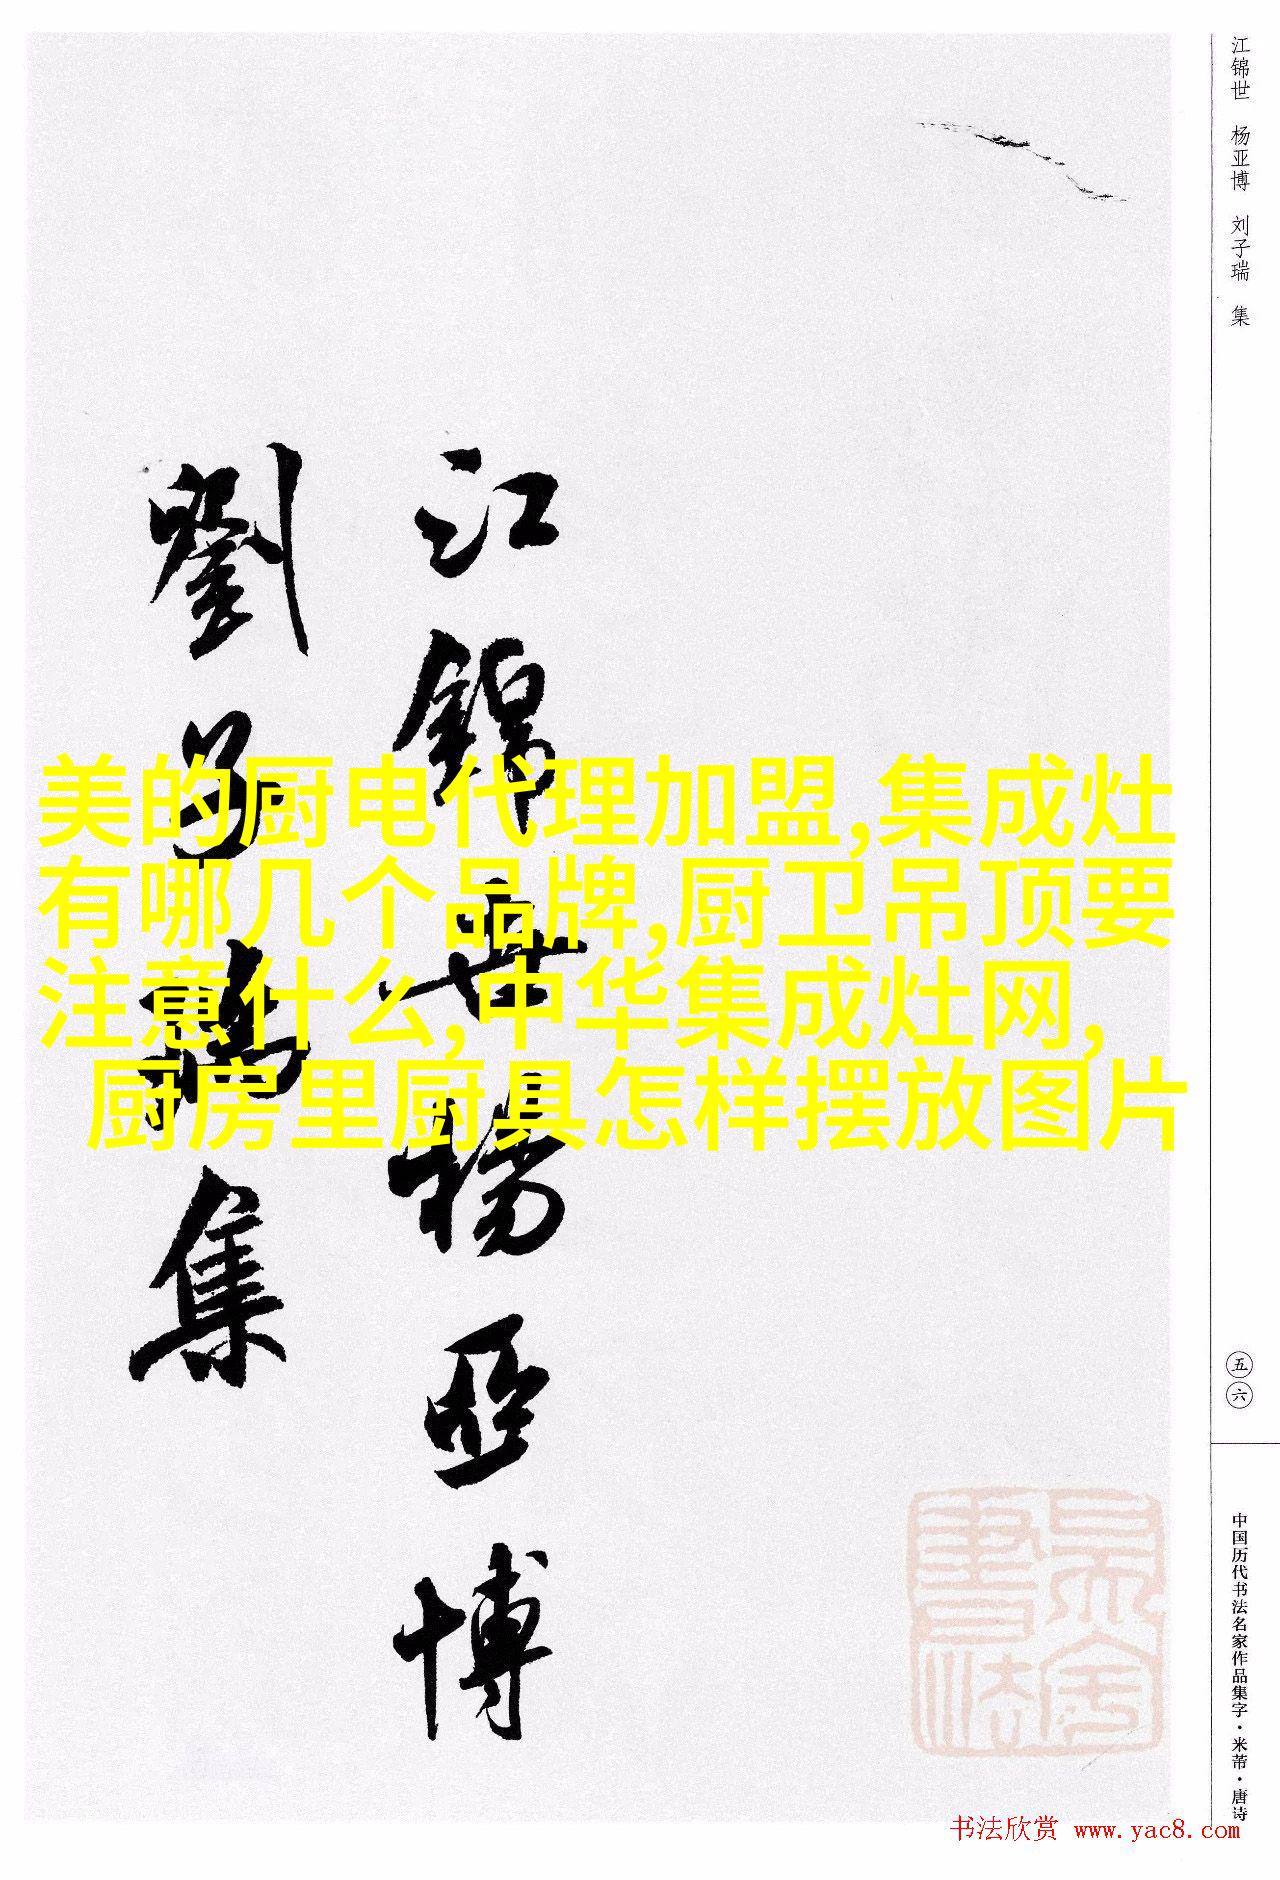 江锦世 杨亚博 刘子瑞 集
江锦世杨亚博
劉子瑞集
美的厨电代理加盟,集成灶
有哪几个品牌,厨卫吊顶要
注意什么,中华集成灶网,
厨房里厨具怎样摆放图片
五六
中国历代书法名家作品集字·米芾·唐诗
书法欣赏 www.yac8.com